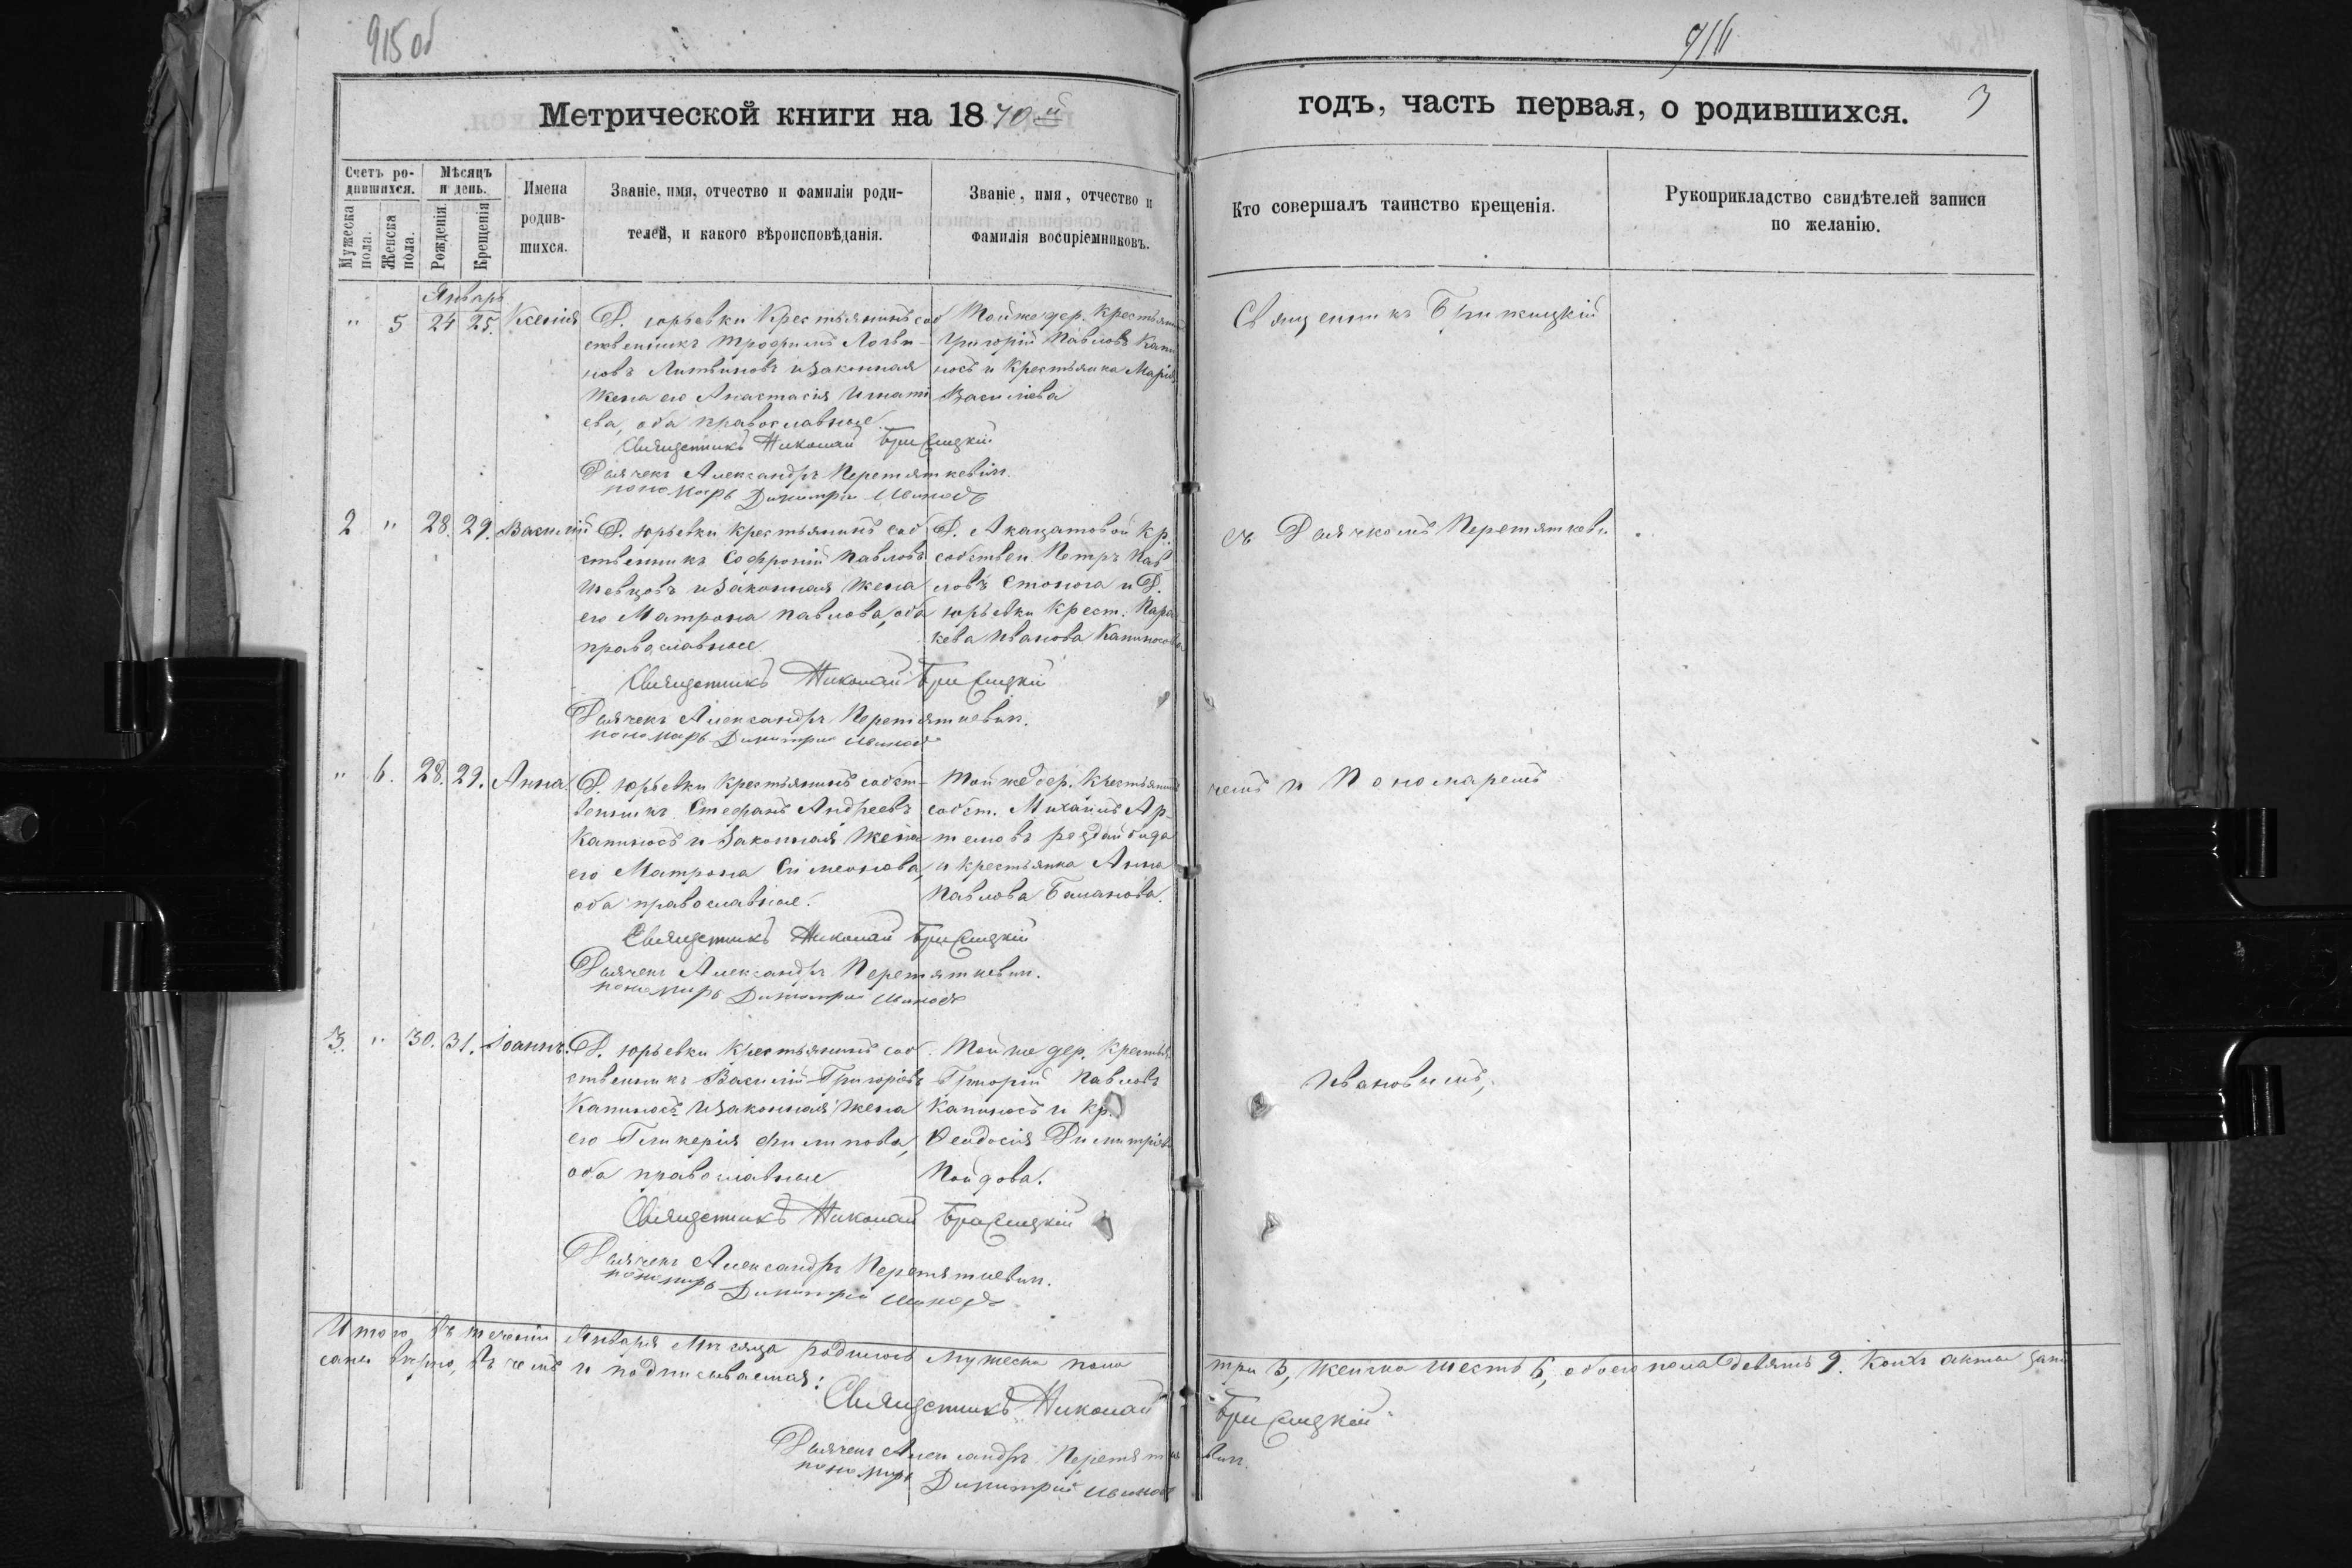 915 об
916
Метрической книги на 1870й
годъ, часть первая, о родившихся.
3
Счетъ ро-
дившихся.
Мужеска
пола.
Женска
пола.
Мѣсяцъ
и день.
Рожденія.
Крещенія
Имена
родив-
шихся.
Званіе, имя, отчество и фамиліи роди-
телей, и какого вѣроисповѣданія.
Званіе, имя, отчество и
фамилія воспріемниковъ.
Кто совершалъ таинство крещенія.
Рукоприкладство свидѣтелей записи
по желанію.
Январь
" 5 24 25. Ксенія
Д. Юрьевки Крестьянинъ соб
ственникъ Трофимъ Логви-
новъ Литвиновъ и законная
жена его Анастасія Игнаті
ева, оба православные
Тойже дер. Крестьянинъ
Григорій Павловъ Капи
носъ и Крестьянка Марія
Василіева
Священникъ Николай
Дьячекъ Александръ Перетяткевич.
пономарь Димитрій Ивановъ
2 " 28. 29. Василій
Д. Юрьевки крестьянинъ соб
ственникъ Софроній Павловъ
Шевцовъ и законная жена
его Матрона Павлова, оба
православные
Д. Акацатовой кр.
собствен. Петръ Пав
ловъ Стонога и Д.
Юрьевки Крест. Парас
кева Иванова Капиносова
Священникъ Николай
Дьячекъ Александръ Перетяткевич.
пономарь Димитрій Ивановъ
" 6. 28. 29. Анна
Д. Юрьевки Крестьянинъ собст-
венникъ Стефанъ Андреевъ
Капиносъ и законная жена
его Матрона Симеонова,
оба православные.
Тойже дер. Крестьянинъ
собст. Михаилъ Ар-
темовъ
и крестьянка Анна
Павлова Баланова.
Священникъ Николай
Дьячекъ Александръ Перетяткевич.
пономарь Димитрій Ивановъ
3. " 30. 31. Іоаннъ.
Д. Юрьевки Крестьянинъ соб
ственникъ Василій Григоріевъ
Капиносъ и законная жена
его Гликерія Филипова,
оба православные
Тойже дер. Крестья
Григорій Павловъ
Капиносъ и Кр.
Феодосія Димитріева
Пойдова.
Священникъ Николай
Дьячекъ Александръ Перетяткевич.
пономарь Димитрій Ивановъ
Священникъ
съ Дьячкомъ Перетяткеви
чемъ и Пономаремъ
Ивановымъ,
Итого въ теченіи Января Мѣсяца родилось мужеска пола три 3, женска шесть 6, обоего пола девять 9. Коихъ акты запи
саны вѣрно, въ чемъ и подписываемся:
Священникъ Николай
Дьячекъ Александръ Перетяткевич.
пономарь Димитрій Ивановъ